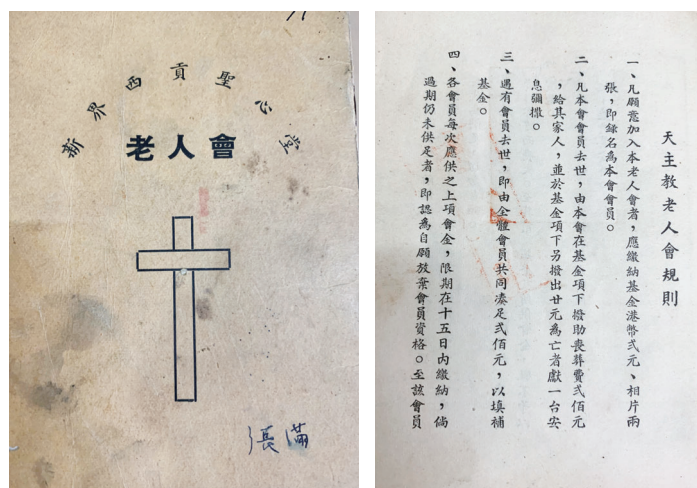 新界西貢聖心堂
老人會
張滿
天主教老人會規則
一、凡願意加入本老人會者，應繳納基金港幣弍元、相片兩
張，即錄名為本會會員。
二、凡本會會員去世，由本會在基金項下撥助喪葬費弍佰元
，給其家人，並於基金項下另撥出廿元為亡者獻一台安
息彌撒。
三、遇有會員去世，即由全體會員共同湊足弍佰元，以填補
基金。
四、各會員每次應供之上項會金，限期在十五日內繳納，倘
過期仍未供足者，即認為自願放棄會員資格。至該會員